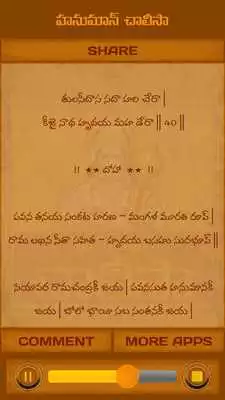 హనుమాన్ చాలీసా
SHARE
తులసీదాస సదా హరి చేరా |
కీజై నాథ హృదయ మహ డేరా || 40 ||
|| ★★ దోహా ★★ ||
పవన తనయ సంకట హరణ – మంగళ మూరతి రూప్ |
రామ లఖన సీతా సహిత – హృదయ బసహు సురభూప్ ||
సియావర రామచంద్రకీ జయ | పవనసుత హనుమానకీ
జయ | బోలో భాయీ సబ సంతనకీ జయ |
COMMENT
MORE APPS